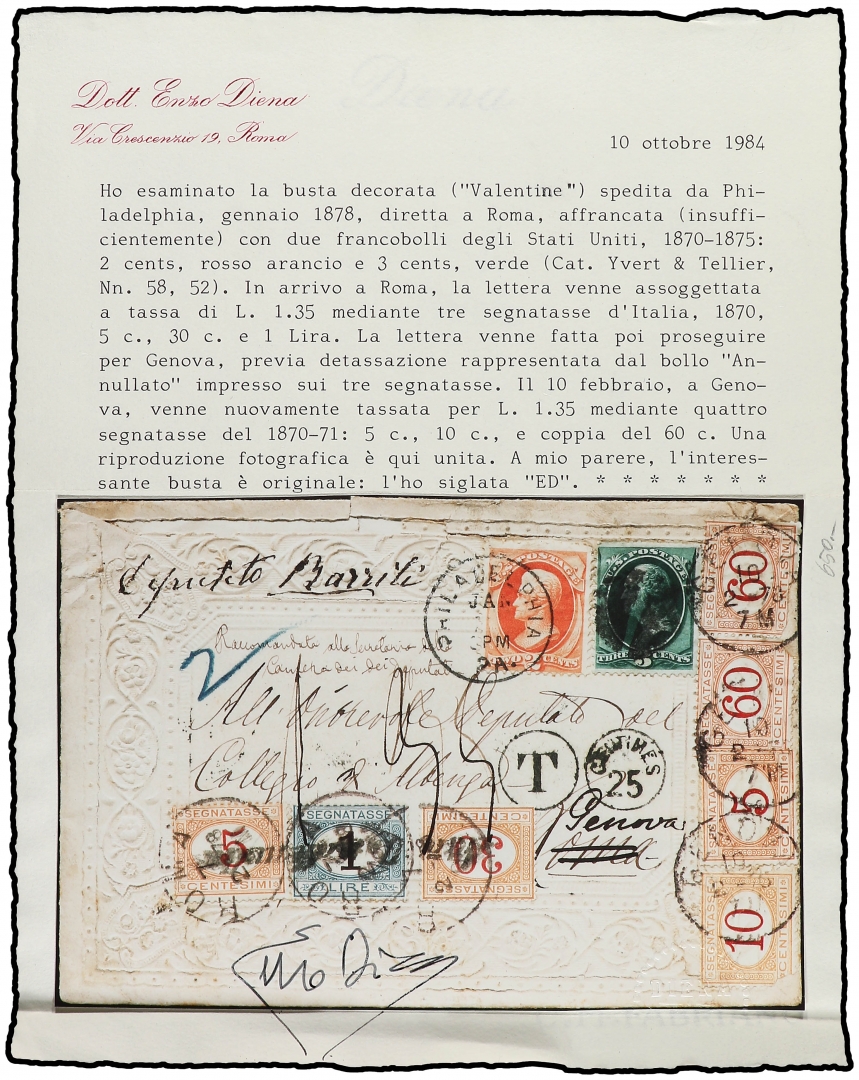 Dott. Enzo Diena
Via Crescenzio 19, Roma
10 ottobre 1984
Ho esaminato la busta decorata ("Valentine") spedita da Phi-
ladelphia, gennaio 1878, diretta a Roma, affrancata (insuffi-
cientemente) con due francobolli degli Stati Uniti, 1870-1875:
2 cents, rosso arancio e 3 cents, verde (Cat. Yvert & Tellier,
Nn. 58, 52). In arrivo a Roma, la lettera venne assoggettata
a tassa di L. 1.35 mediante tre segnatasse d'Italia, 1870,
5 c., 30 c. e 1 Lira. La lettera venne fatta poi proseguire
per Genova, previa detassazione rappresentata dal bollo "An-
nullato" impresso sui tre segnatasse. Il 10 febbraio, a Geno-
va, venne nuovamente tassata per L. 1.35 mediante quattro
segnatasse del 1870-71: 5 c., 10 c., e coppia del 60 c. Una
riproduzione fotografica è qui unita. A mio parere, l'interes-
sante busta è originale: l'ho siglata "ED". * * * * * * *
650.-
Deputato Barrili
PHILADELPHIA
JAN
PM
PA.
TWO CENTS
U.S. POSTAGE
THREE 3 CENTS
SEGNATASSE 60 CENTESIMI
7 M
2
Raccomandata alla Segreteria
Camera dei deputati
All'Onorevole Deputato del
Collegio di Albenga
135
T
CENTIMES
25
SEGNATASSE 60 CENTESIMI
10
7 M
SEGNATASSE 5 CENTESIMI
Genova
SEGNATASSE 5 CENTESIMI
SEGNATASSE 1 LIRE
SEGNATASSE 30 CENTESIMI
ROMA
SEGNATASSE 10 CENTESIMI